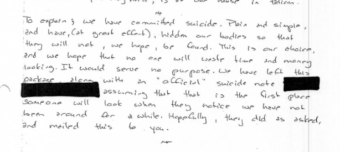 To explain: we have committed suicide. Plain and simple,
and have, (at great effort), hidden our bodies so that
they will not, we hope, be found. This is our choice,
and we hope that no one will waste time and money
looking. It would serve no purpose. We have left this
package along with an "official" suicide note
assuming that that is the first place
someone will look when they notice we have not
been around for a while. Hopefully, they did as asked,
and mailed this to you.